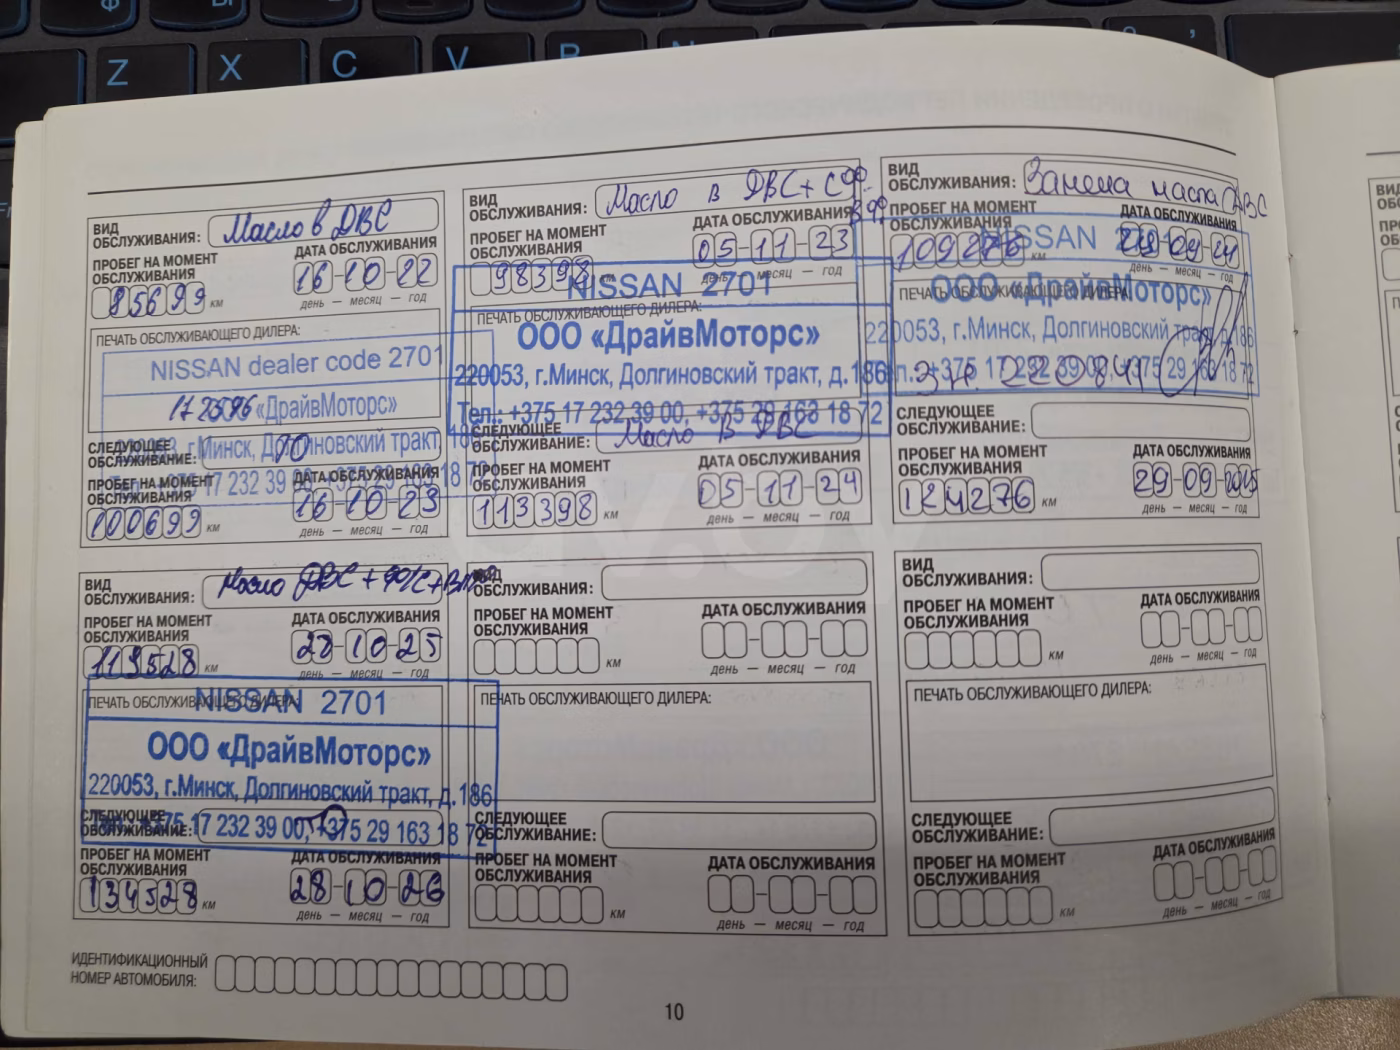 Z X C V B
ВИД ОБСЛУЖИВАНИЯ: Масло в ДВС
ПРОБЕГ НА МОМЕНТ ОБСЛУЖИВАНИЯ
ДАТА ОБСЛУЖИВАНИЯ
85699 км
16-10-22
день — месяц — год
ПЕЧАТЬ ОБСЛУЖИВАЮЩЕГО ДИЛЕРА:
NISSAN dealer code 2701
«ДрайвМоторс»
г.Минск, Долгиновский тракт,
17 232 39
СЛЕДУЮЩЕЕ ОБСЛУЖИВАНИЕ: ТО
ПРОБЕГ НА МОМЕНТ ОБСЛУЖИВАНИЯ
ДАТА ОБСЛУЖИВАНИЯ
100699 км
16-10-23
день — месяц — год
ВИД ОБСЛУЖИВАНИЯ: Масло в ДВС+СФ
ПРОБЕГ НА МОМЕНТ ОБСЛУЖИВАНИЯ
ДАТА ОБСЛУЖИВАНИЯ
98398 км
05-11-23
день — месяц — год
ПЕЧАТЬ ОБСЛУЖИВАЮЩЕГО ДИЛЕРА:
NISSAN 2701
ООО «ДрайвМоторс»
220053, г.Минск, Долгиновский тракт, д.186
Тел.: +375 17 232 39 00, +375 29 163 18 72
СЛЕДУЮЩЕЕ ОБСЛУЖИВАНИЕ: Масло в ДВС
ПРОБЕГ НА МОМЕНТ ОБСЛУЖИВАНИЯ
ДАТА ОБСЛУЖИВАНИЯ
113398 км
05-11-24
день — месяц — год
ВИД ОБСЛУЖИВАНИЯ: Замена масла ДВС
ПРОБЕГ НА МОМЕНТ ОБСЛУЖИВАНИЯ
ДАТА ОБСЛУЖИВАНИЯ
109276 км
день — месяц — год
ПЕЧАТЬ ОБСЛУЖИВАЮЩЕГО ДИЛЕРА:
NISSAN
ООО «ДрайвМоторс»
220053, г.Минск, Долгиновский тракт, д.186
+375 17 232 39 00, +375 29 163 18 72
СЛЕДУЮЩЕЕ ОБСЛУЖИВАНИЕ:
ПРОБЕГ НА МОМЕНТ ОБСЛУЖИВАНИЯ
ДАТА ОБСЛУЖИВАНИЯ
124276 км
29-09-2025
день — месяц — год
ВИД ОБСЛУЖИВАНИЯ: Масло ДВС +
ПРОБЕГ НА МОМЕНТ ОБСЛУЖИВАНИЯ
ДАТА ОБСЛУЖИВАНИЯ
119528 км
28-10-25
день — месяц — год
ПЕЧАТЬ ОБСЛУЖИВАЮЩЕГО ДИЛЕРА:
NISSAN 2701
ООО «ДрайвМоторс»
220053, г.Минск, Долгиновский тракт, д.186
+375 17 232 39 00, +375 29 163 18 72
СЛЕДУЮЩЕЕ ОБСЛУЖИВАНИЕ: ТО
ПРОБЕГ НА МОМЕНТ ОБСЛУЖИВАНИЯ
ДАТА ОБСЛУЖИВАНИЯ
134528 км
28-10-26
день — месяц — год
ВИД ОБСЛУЖИВАНИЯ:
ПРОБЕГ НА МОМЕНТ ОБСЛУЖИВАНИЯ
ДАТА ОБСЛУЖИВАНИЯ
км
день — месяц — год
ПЕЧАТЬ ОБСЛУЖИВАЮЩЕГО ДИЛЕРА:
СЛЕДУЮЩЕЕ ОБСЛУЖИВАНИЕ:
ПРОБЕГ НА МОМЕНТ ОБСЛУЖИВАНИЯ
ДАТА ОБСЛУЖИВАНИЯ
км
день — месяц — год
ВИД ОБСЛУЖИВАНИЯ:
ПРОБЕГ НА МОМЕНТ ОБСЛУЖИВАНИЯ
ДАТА ОБСЛУЖИВАНИЯ
км
день — месяц — год
ПЕЧАТЬ ОБСЛУЖИВАЮЩЕГО ДИЛЕРА:
СЛЕДУЮЩЕЕ ОБСЛУЖИВАНИЕ:
ПРОБЕГ НА МОМЕНТ ОБСЛУЖИВАНИЯ
ДАТА ОБСЛУЖИВАНИЯ
км
день — месяц — год
ИДЕНТИФИКАЦИОННЫЙ НОМЕР АВТОМОБИЛЯ:
10
av.by